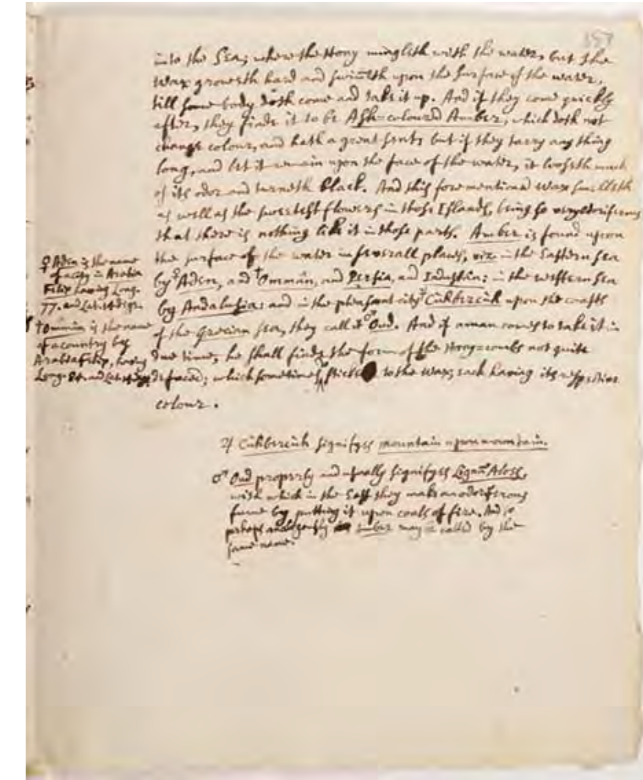 157
into the Sea; where the Hony mingleth with the water, but the
wax groweth hard and swimeth upon the surface of the water,
till some body doth come and take it up. And if they come quickly
after, they finde it to be Ash-coloured Amber, which doth not
change colour, and hath a great sent; but if they tarry any thing
long, and let it remain upon the face of the water, it looseth much
of its odor and turneth black. And this forementioned wax smelleth
as well as the sweetest flowers in those Islands, being so very odoriferous
that there is nothing like it in those parts. Amber is found upon
the surface of the water in severall places, viz in the Eastern sea
by ♀Aden, and ☿Ommân, and Persia, and Industân: in the western sea
by Andalusia: and in the pleasant city ♃Cuhbercuh upon the coasts
of the Grecian sea, they call it ♂Oud. And if a man comes to take it in
due time, he shall finde the form of the Honycombs not quite
defaced; which sometimes sticks to the wax, each having its respective
colour.
♀ Aden is the name
of a city in Arabia
Felix having Long.
77. and Lat. 11 degr.
☿ Ommân is the name
of a country by
Arabia Felix, having
Long. 84 and Lat
♃ Cuhbercuh signifys mountain upon mountain.
♂ Oud properly and usually signifys Lignm Aloes,
with which in the East they make an odoriferous
fume by putting it upon coals of fire. And so
perhaps analogously amber may be called by the
same name.